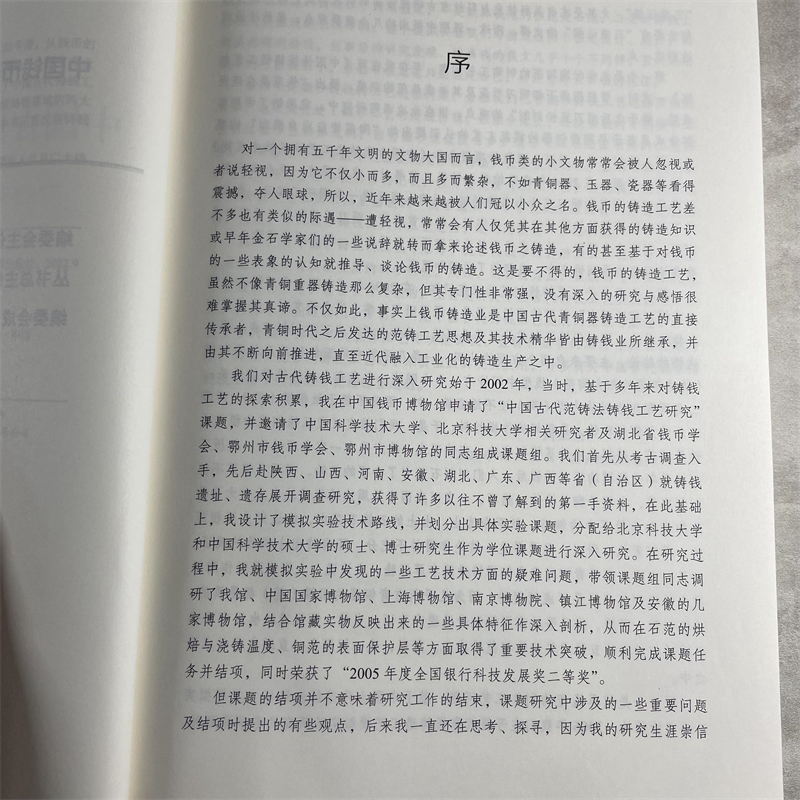 序
对一个拥有五千年文明的文物大国而言，钱币类的小文物常常会被人忽视或
者说轻视，因为它不仅小而多，而且多而繁杂，不如青铜器、玉器、瓷器等看得
震撼，夺人眼球，所以，近年来越来越被人们冠以小众之名。钱币的铸造工艺差
不多也有类似的际遇——遭轻视，常常会有人仅凭其在其他方面获得的铸造知识
或早年金石学家们的一些说辞就转而拿来论述钱币之铸造，有的甚至基于对钱币
的一些表象的认知就推导、谈论钱币的铸造。这是要不得的，钱币的铸造工艺，
虽然不像青铜重器铸造那么复杂，但其专门性非常强，没有深入的研究与感悟很
难掌握其真谛。不仅如此，事实上钱币铸造业是中国古代青铜器铸造工艺的直接
传承者，青铜时代之后发达的范铸工艺思想及其技术精华皆由铸钱业所继承，并
由其不断向前推进，直至近代融入工业化的铸造生产之中。
我们对古代铸钱工艺进行深入研究始于 2002 年，当时，基于多年来对铸钱
工艺的探索积累，我在中国钱币博物馆申请了“中国古代范铸法铸钱工艺研究”
课题，并邀请了中国科学技术大学、北京科技大学相关研究者及湖北省钱币学
会、鄂州市钱币学会、鄂州市博物馆的同志组成课题组。我们首先从考古调查入
手，先后赴陕西、山西、河南、安徽、湖北、广东、广西等省（自治区）就铸钱
遗址、遗存展开调查研究，获得了许多以往不曾了解到的第一手资料，在此基础
上，我设计了模拟实验技术路线，并划分出具体实验课题，分配给北京科技大学
和中国科学技术大学的硕士、博士研究生作为学位课题进行深入研究。在研究过
程中，我就模拟实验中发现的一些工艺技术方面的疑难问题，带领课题组同志调
研了我馆、中国国家博物馆、上海博物馆、南京博物院、镇江博物馆及安徽的几
家博物馆，结合馆藏实物反映出来的一些具体特征作深入剖析，从而在石范的烘
焙与浇铸温度、铜范的表面保护层等方面取得了重要技术突破，顺利完成课题任
务并结项，同时荣获了“2005 年度全国银行科技发展奖二等奖”。
但课题的结项并不意味着研究工作的结束，课题研究中涉及的一些重要问题
及结项时提出的有些观点，后来我一直还在思考、探寻，因为我的研究生涯崇信